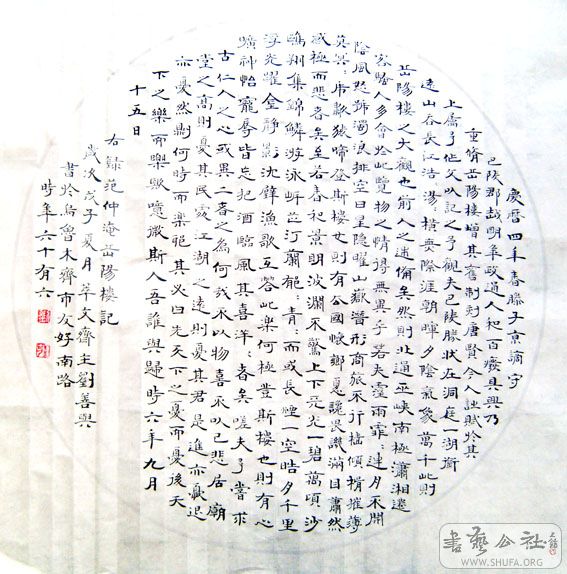 慶曆四年春滕子京謫守
巴陵郡越明年政通人和百廢具興乃
重脩岳陽樓增其舊制刻唐賢今人詩賦於其
上屬予作文以記之予觀夫巴陵勝狀在洞庭一湖銜
遠山吞長江浩:湯:橫無際涯朝暉夕陰氣象萬千此則
岳陽樓之大觀也前人之述備矣然則北通巫峽南極瀟湘遷
客騷人多會於此覽物之情得無異乎若夫霪雨霏:連月不開
陰風怒號濁浪排空日星隱曜山嶽潛形商旅不行檣傾楫摧薄
暮冥:虎嘯猿啼登斯樓也則有去國懷鄉憂讒畏譏滿目蕭然
感極而悲者矣至若春和景明波瀾不驚上下天光一碧萬頃沙
鷗翔集錦鱗游泳岸芷汀蘭郁:青:而或長煙一空皓月千里
浮光躍金靜影沈璧漁歌互答此樂何極登斯樓也則有心
曠神怡寵辱皆忘把酒臨風其喜洋:者矣嗟夫予嘗求
古仁人之心或異二者之為何哉不以物喜不以己悲居廟
堂之高則憂其民處江湖之遠則憂其君是進亦憂退
亦憂然則何時而樂耶其必曰先天下之憂而憂後天
下之樂而樂歟噫微斯人吾誰與歸時六年九月
十五日
右錄范仲淹岳陽樓記
歲次戊子夏月萃文齋主劉善興
書於烏魯木齊市友好南路
時年六十有六
書藝公社
WWW.SHUFA.ORG